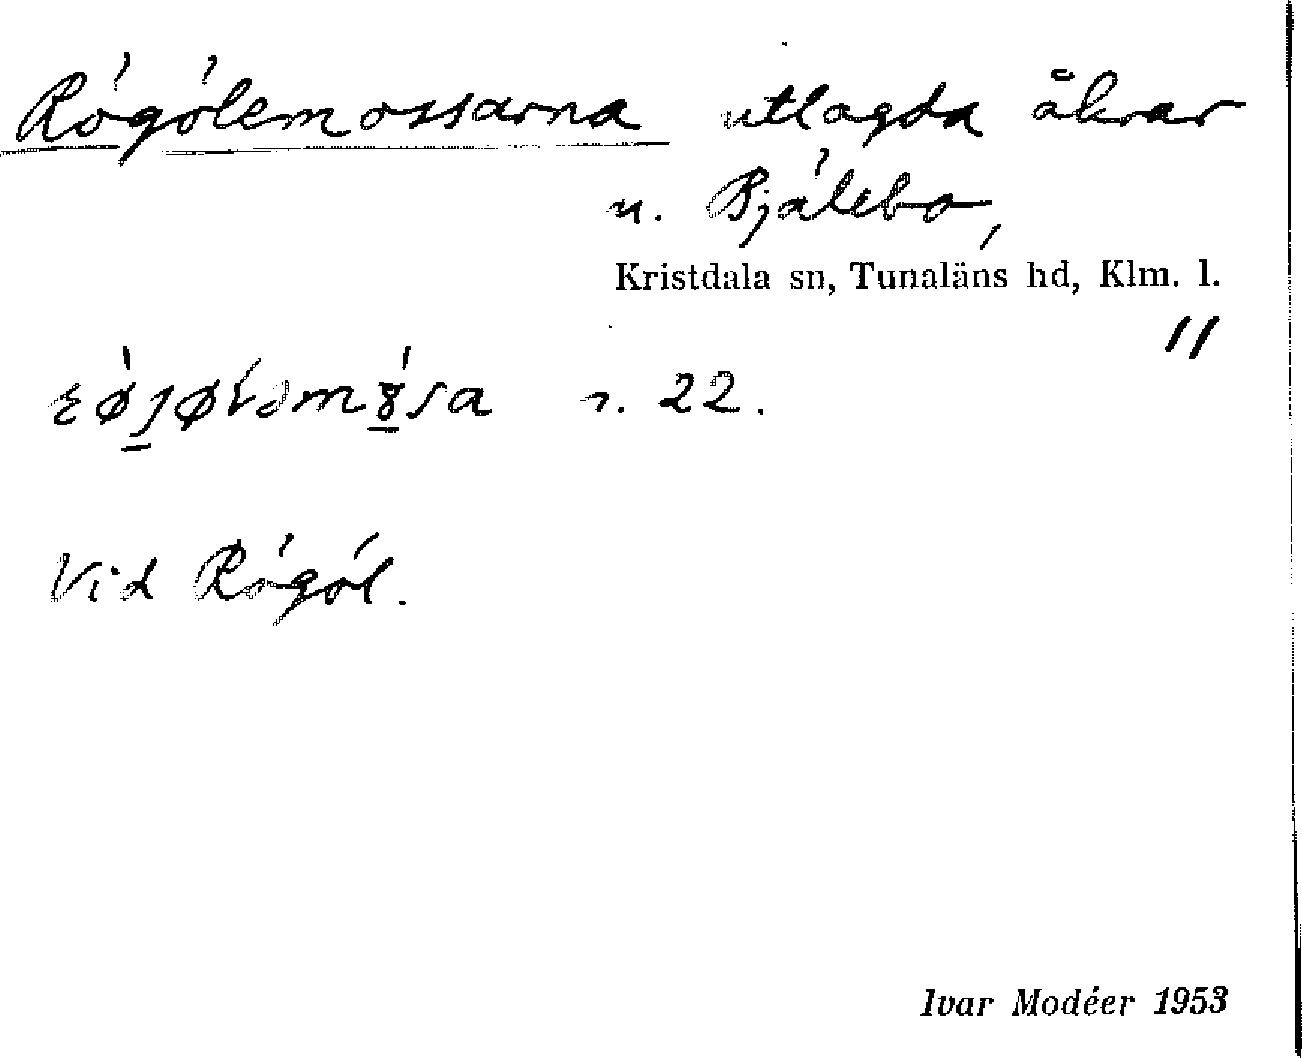 Rögölemossarna utlagda åkrar
u. Bjälebo,
Kristdala sn, Tunaläns hd, Klm. l.
"
r. 22.
Vid Rögöl.
Ivar Modéer 1953